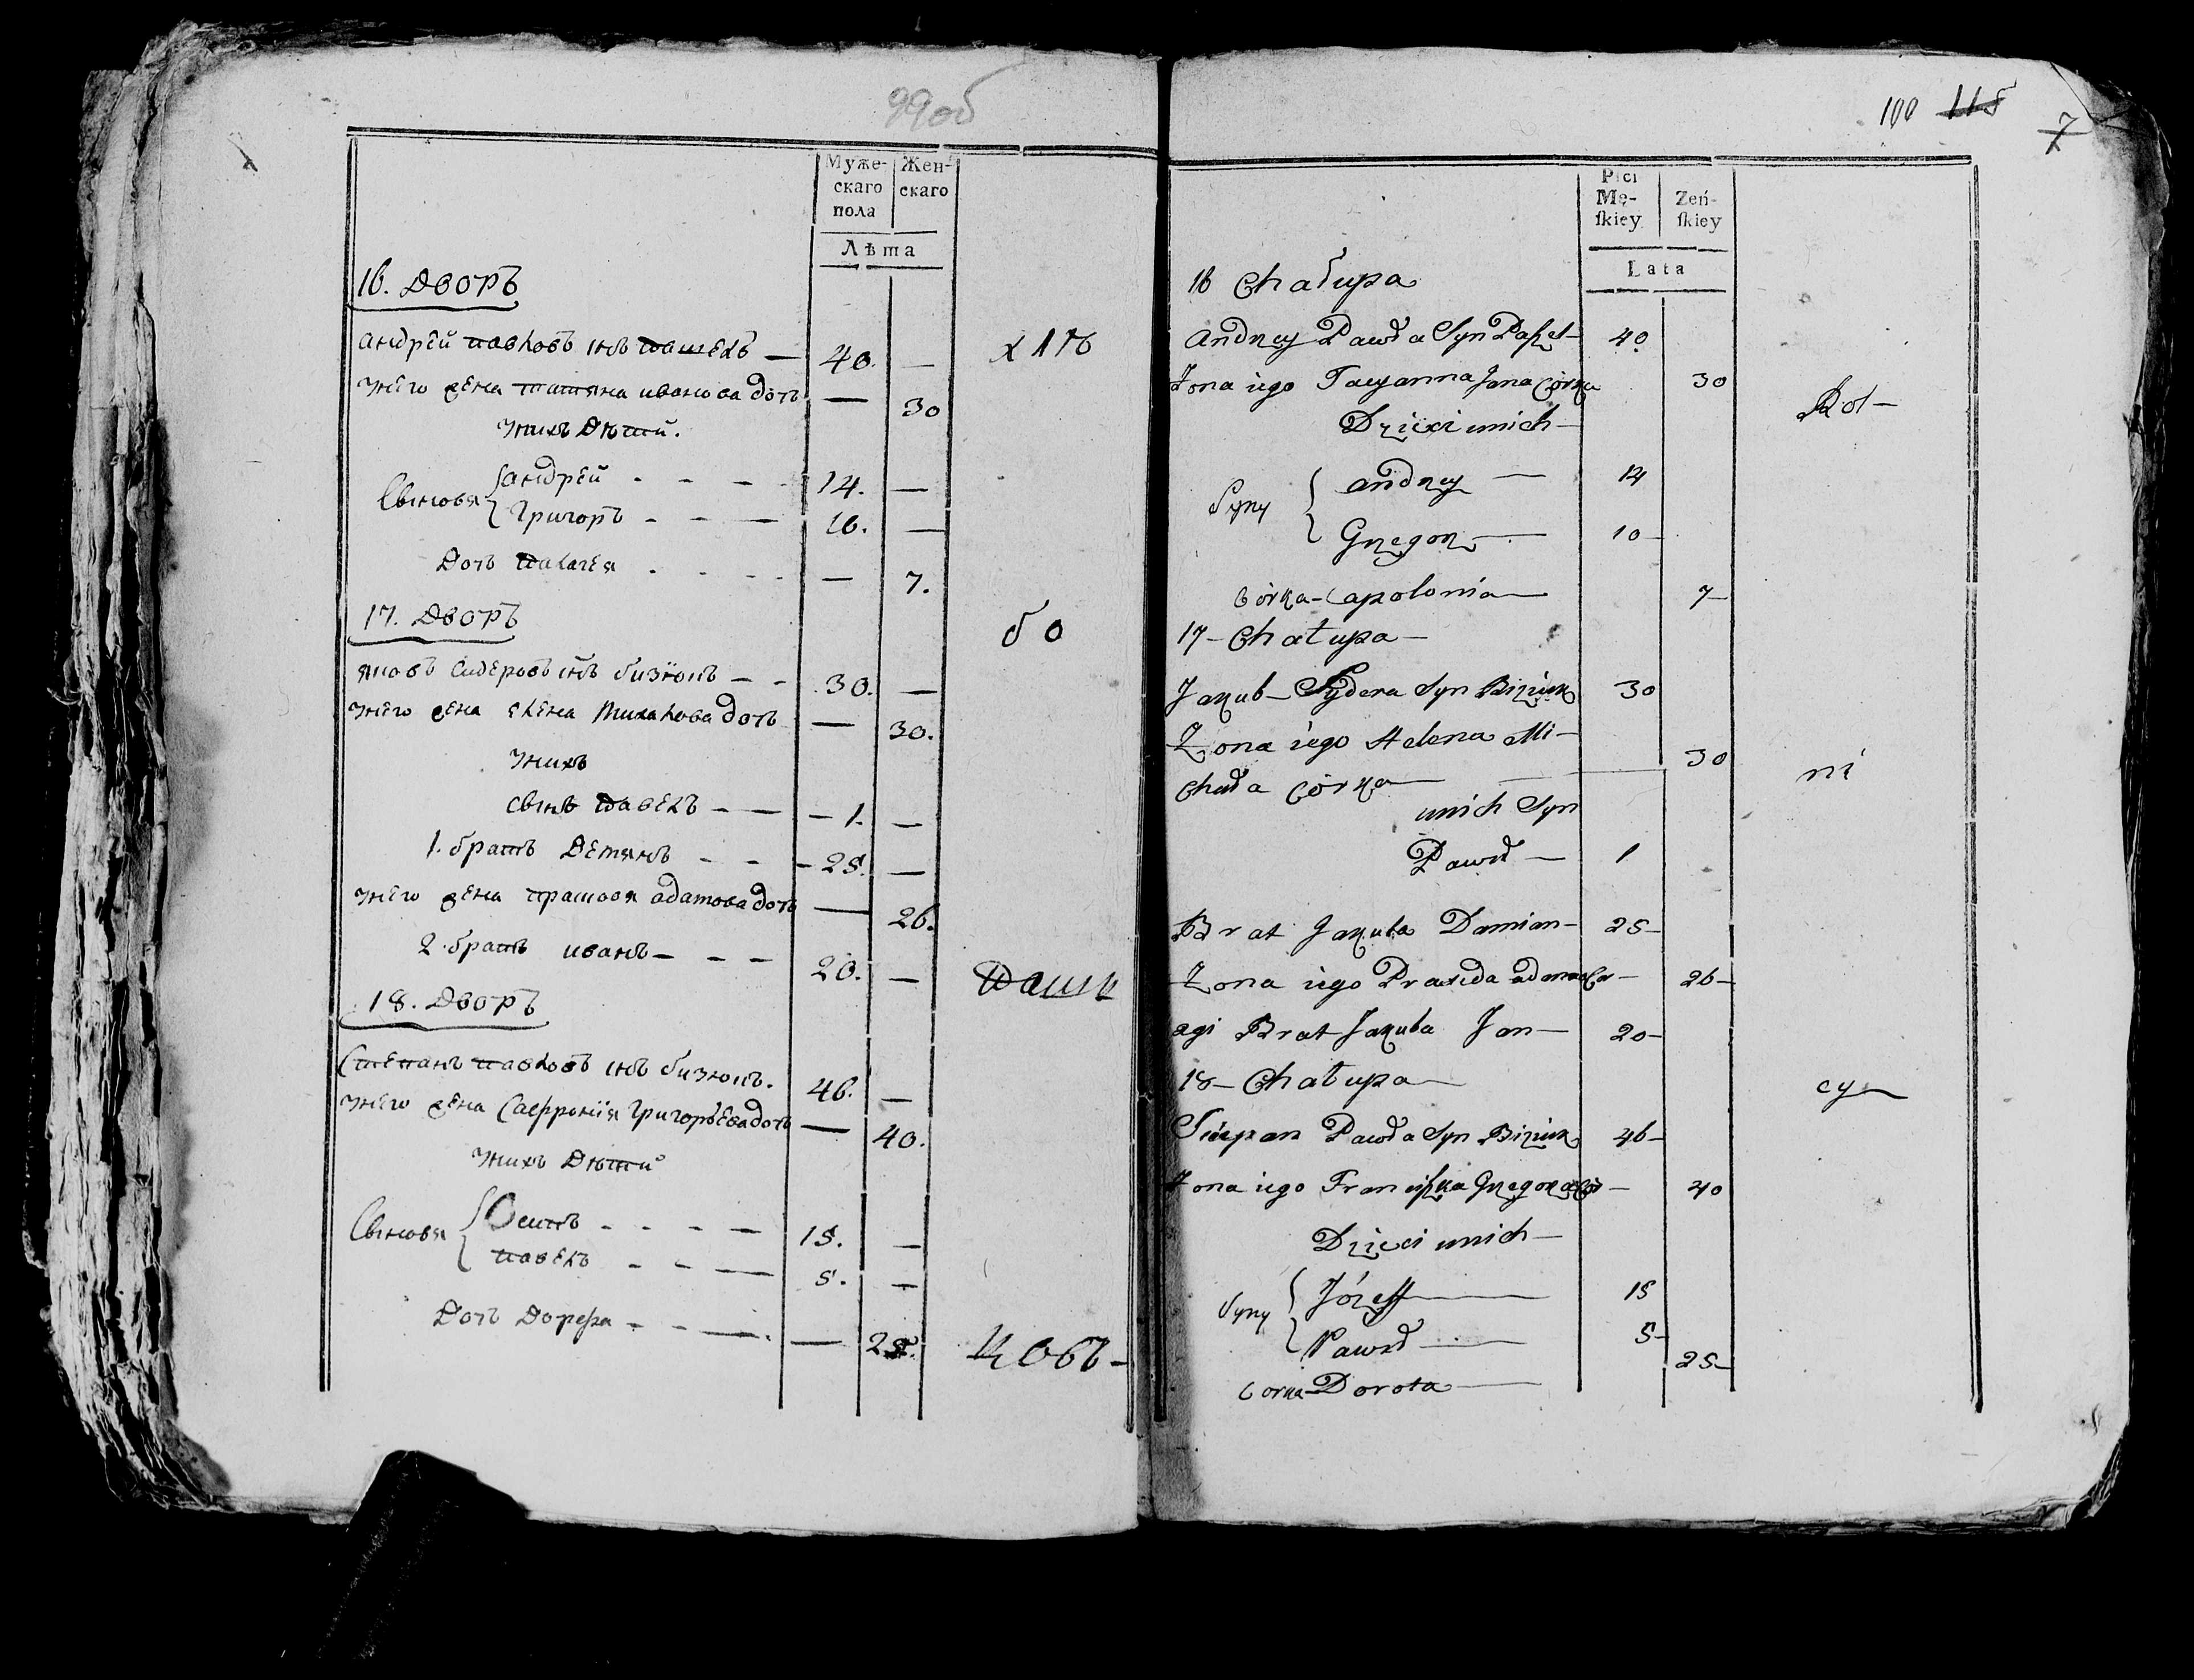 99об
Муже-
скаго
пола
Жен-
скаго
Лѣта
16. Дворъ
Андрей павловъ снъ пашелъ — 40. —
Унего жена татяна иванова дочь — 30
Унихъ Дѣтй.
Сыновя { андрей - - - 14. —
Григоръ - - — 10. —
Дочь палагея - - - — 7.
17. Дворъ
бо
яковъ Сидеровъ снъ бизюкъ — - 30. —
Унего жена елена михалова дочь — 30.
Унихъ
сынъ павелъ - — 1. —
1. братъ Демянъ - - - 25. —
Унего жена прасковя адамова дочь — 26.
2. братъ иванъ — - - 20. —
18. Дворъ
Степанъ павловъ снъ бизюкъ. 46. —
Унего жена Сафронія григоръева дочь — 40.
Унихъ Дѣтй
Сыновя { Осипъ - - - — 15. —
павелъ - - — 5. —
Дочь Дорефа - - — — 25.
100 115
7
Płci
Mę-
skiey
Zeń-
skiey
Lata
16 Chałupa
Andrzey Pawła Syn Paszel — 40
Zona iego Tacyanna Jana Córka 30
Rol —
Dzieci unich —
Syny { Andrzey — 14
Grzegorz — 10 —
Córka — Apolonia — 7 —
17 — Chałupa —
Jakub — Sydera Syn Biziuk 30
Zona iego Helena Mi-
chała Córka — 30
ni
unich Syn
Paweł — 1
Brat Jakuba Damian — 25 —
Zona iego Praxeda Adama Cór — 26 —
2gi Brat Jakuba Jan — 20 —
18 — Chałupa —
cy
Sciepan Pawła Syn Biziuk 46 —
Zona iego Franciszka Grzegorza Cór — 40
Dzieci unich —
Syny { Józeff — 15
Paweł — 5 —
Corka — Dorota — 25 —